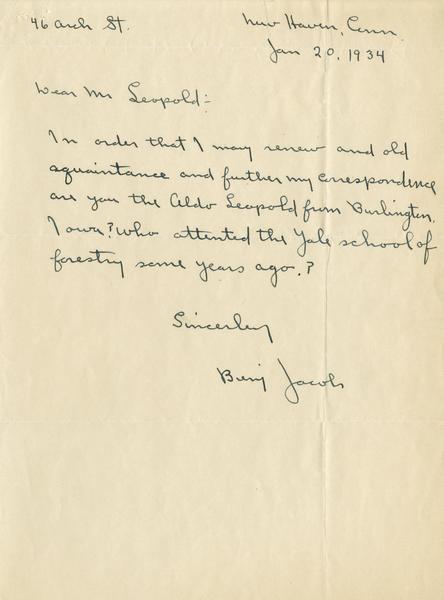 46 Arch St.
New Haven, Conn.
Jan 20, 1934
Dear Mr Leopold:-
In order that I may renew and old
aquaintance and further my correspondence
are you the Aldo Leopold from Burlington,
Iowa? who attented the Yale school of
forestry some years ago.?
Sincerley
Benj Jacobs